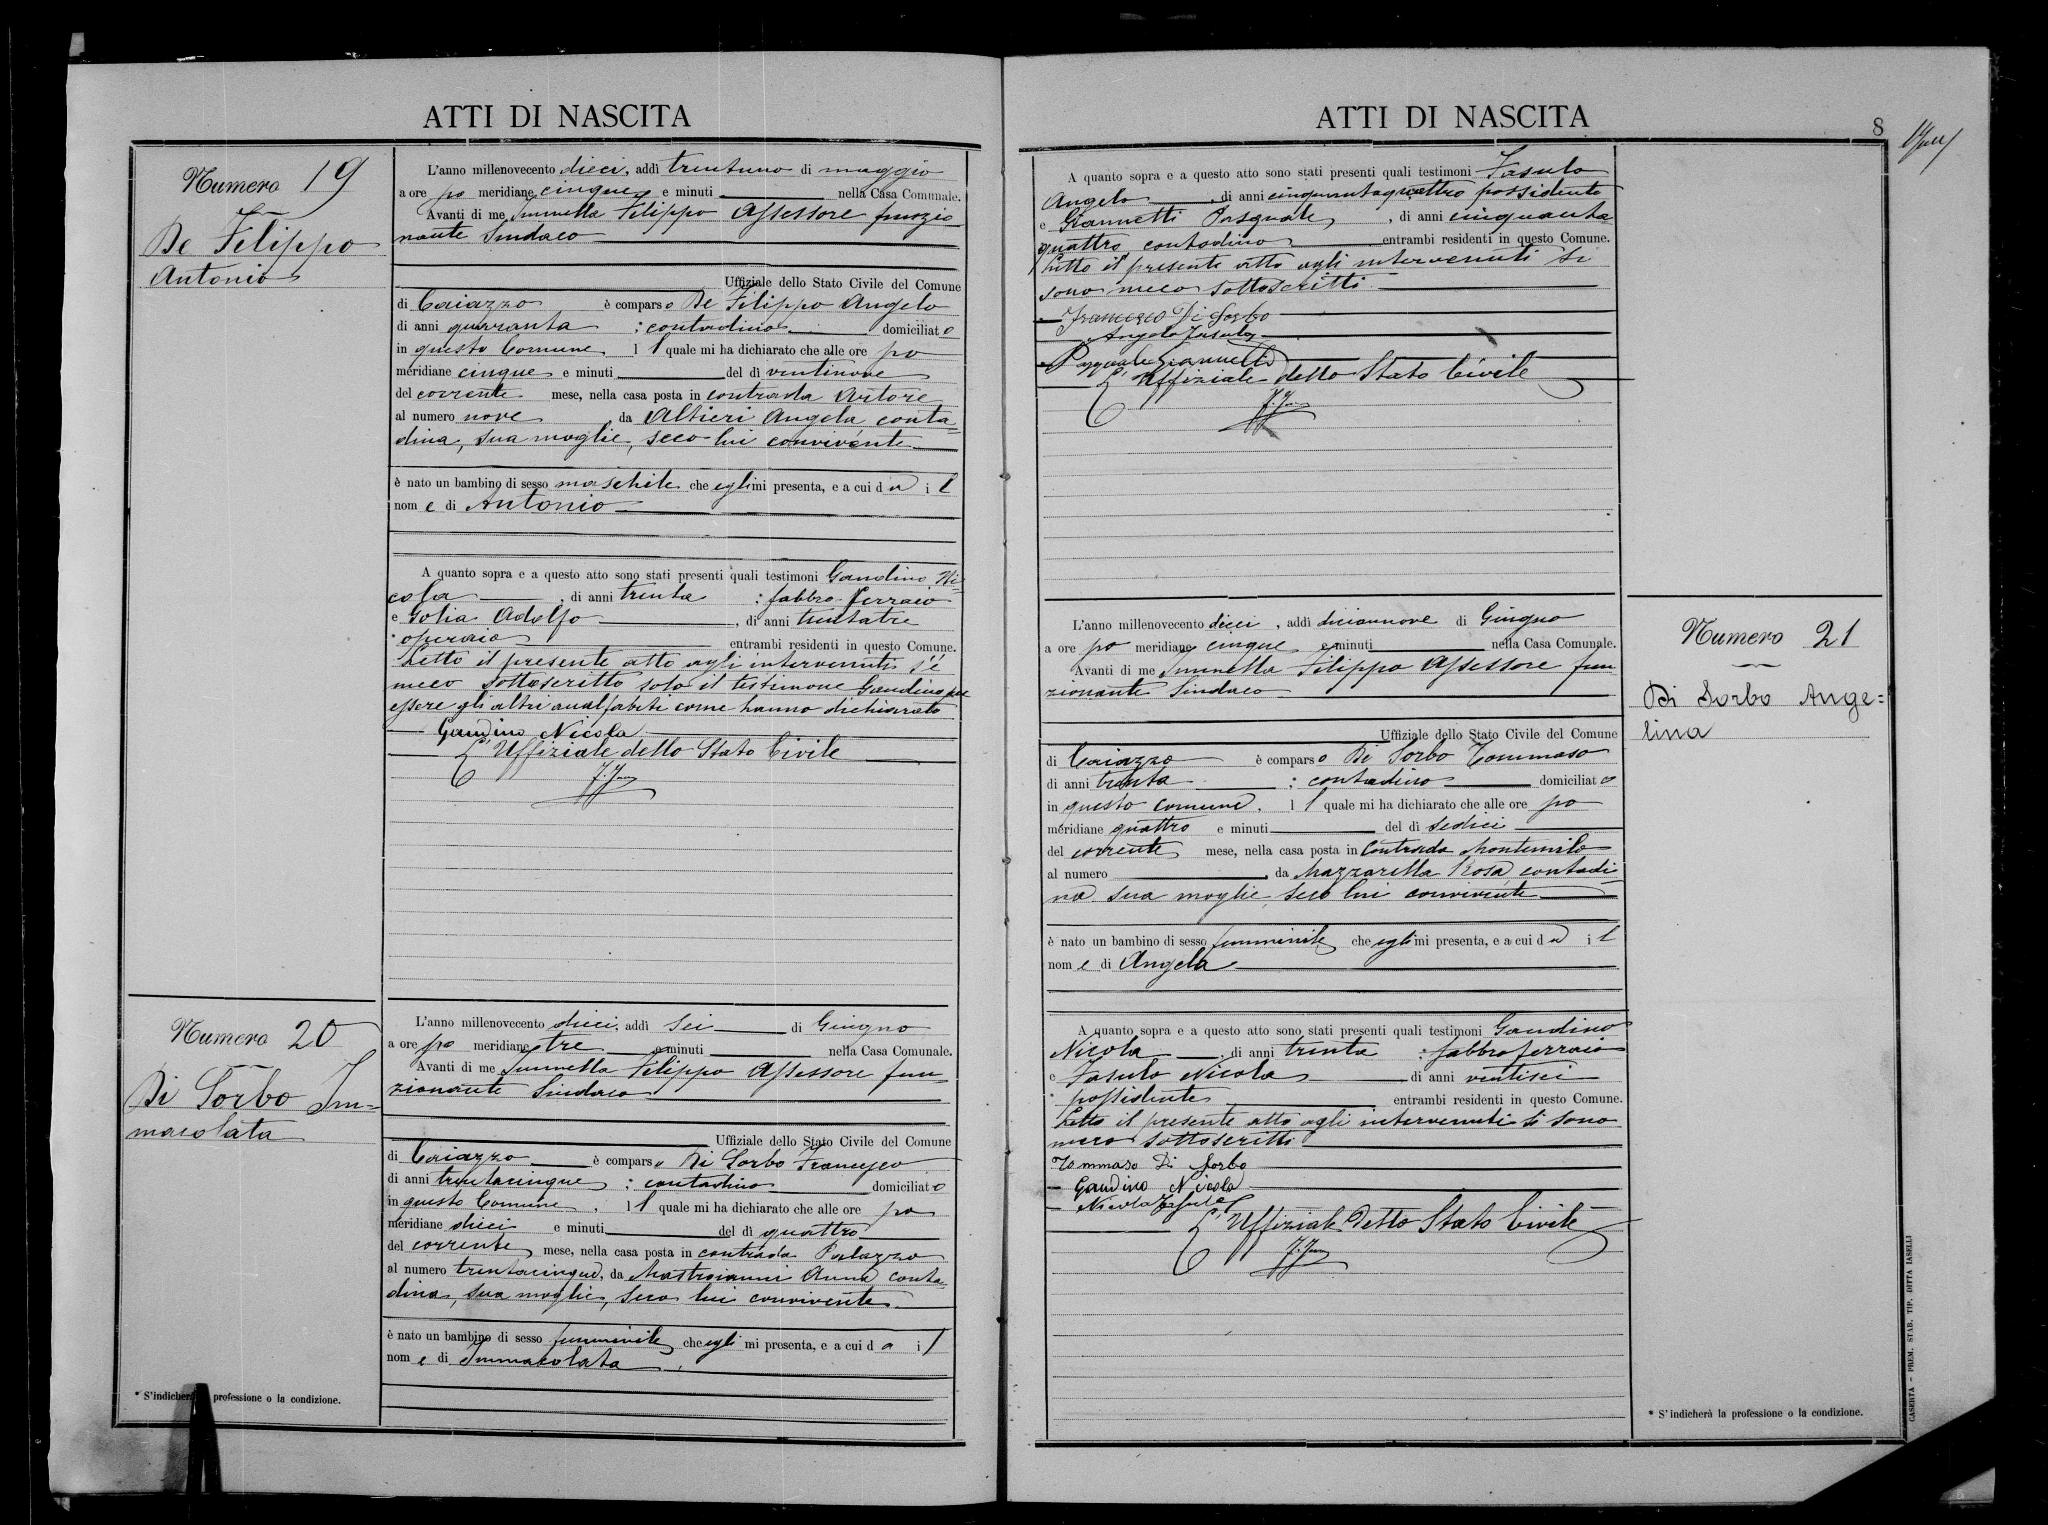 ATTI DI NASCITA
Numero 19
De Filippo
Antonio
L'anno millenovecento dieci, addì trentuno di maggio
a ore po meridiane cinque e minuti nella Casa Comunale.
Avanti di me Iannella Filippo Assessore funzio
nante Sindaco
Uffiziale dello Stato Civile del Comune
di Caiazzo è comparso De Filippo Angelo
di anni quaranta ; contadino domiciliato
in questo Comune, il quale mi ha dichiarato che alle ore po
meridiane cinque e minuti del dì ventinove
del corrente mese, nella casa posta in contrada
al numero nove, da Altieri Angela conta=
dina, sua moglie, seco lui convivente
è nato un bambino di sesso maschile che egli mi presenta, e a cui dà il
nome di Antonio
A quanto sopra e a questo atto sono stati presenti quali testimoni Gaudino Ni=
cola, di anni trenta ; fabbro ferraio
e Golia Adolfo, di anni trentatre
* operaio entrambi residenti in questo Comune.
Letto il presente atto agli intervenuti s'è
meco sottoscritto solo il testimone Gaudino per
essere gli altri analfabeti come hanno dichiarato
Gaudino Nicola
L'Uffiziale dello Stato Civile
Numero 20
Di Sorbo Im=
macolata
L'anno millenovecento dieci, addì sei di Giugno
a ore po meridiane tre e minuti nella Casa Comunale.
Avanti di me Iannella Filippo Assessore fun
zionante Sindaco
Uffiziale dello Stato Civile del Comune
di Caiazzo è comparso Di Sorbo Francesco
di anni trentacinque ; contadino domiciliato
in questo Comune, il quale mi ha dichiarato che alle ore po
meridiane dieci e minuti del dì quattro
del corrente mese, nella casa posta in contrada Palazzo
al numero trentacinque, da Mastroianni Anna conta=
dina, sua moglie, seco lui convivente
è nato un bambino di sesso femminile che egli mi presenta, e a cui dà il
nome di Immacolata
* S'indicherà la professione o la condizione.
ATTI DI NASCITA
8
A quanto sopra e a questo atto sono stati presenti quali testimoni Fasulo
Angelo, di anni cinquantaquattro possidente
e Giannetti Pasquale, di anni cinquanta
quattro contadino entrambi residenti in questo Comune.
Letto il presente atto agli intervenuti si
sono meco sottoscritti
Francesco Di Sorbo
Angelo Fasulo
Pasquale Giannetti
L'Uffiziale dello Stato Civile
L'anno millenovecento dieci, addì diciannove di Giugno
a ore po meridiane cinque e minuti nella Casa Comunale.
Avanti di me Iannella Filippo Assessore fun
zionante Sindaco
Uffiziale dello Stato Civile del Comune
di Caiazzo è comparso Di Sorbo Tommaso
di anni trenta ; contadino domiciliato
in questo comune, il quale mi ha dichiarato che alle ore po
meridiane quattro e minuti del dì sedici
del corrente mese, nella casa posta in Contrada Montemilo
al numero, da Mazzarella Rosa, contadi
na sua moglie, seco lui convivente
è nato un bambino di sesso femminile che egli mi presenta, e a cui dà il
nome di Angela
A quanto sopra e a questo atto sono stati presenti quali testimoni Gaudino
Nicola, di anni trenta ; fabbro ferraio
e Fasulo Nicola di anni ventisei
* possidente entrambi residenti in questo Comune.
Letto il presente atto agli intervenuti si sono
meco sottoscritti
Tommaso Di Sorbo
Gaudino Nicola
Nicola Fasulo
L'Uffiziale Dello Stato Civile
Numero 21
Di Sorbo Ange=
lina
* S'indicherà la professione o la condizione.
CASERTA - PREM. STAB. TIP. DITTA IASELLI